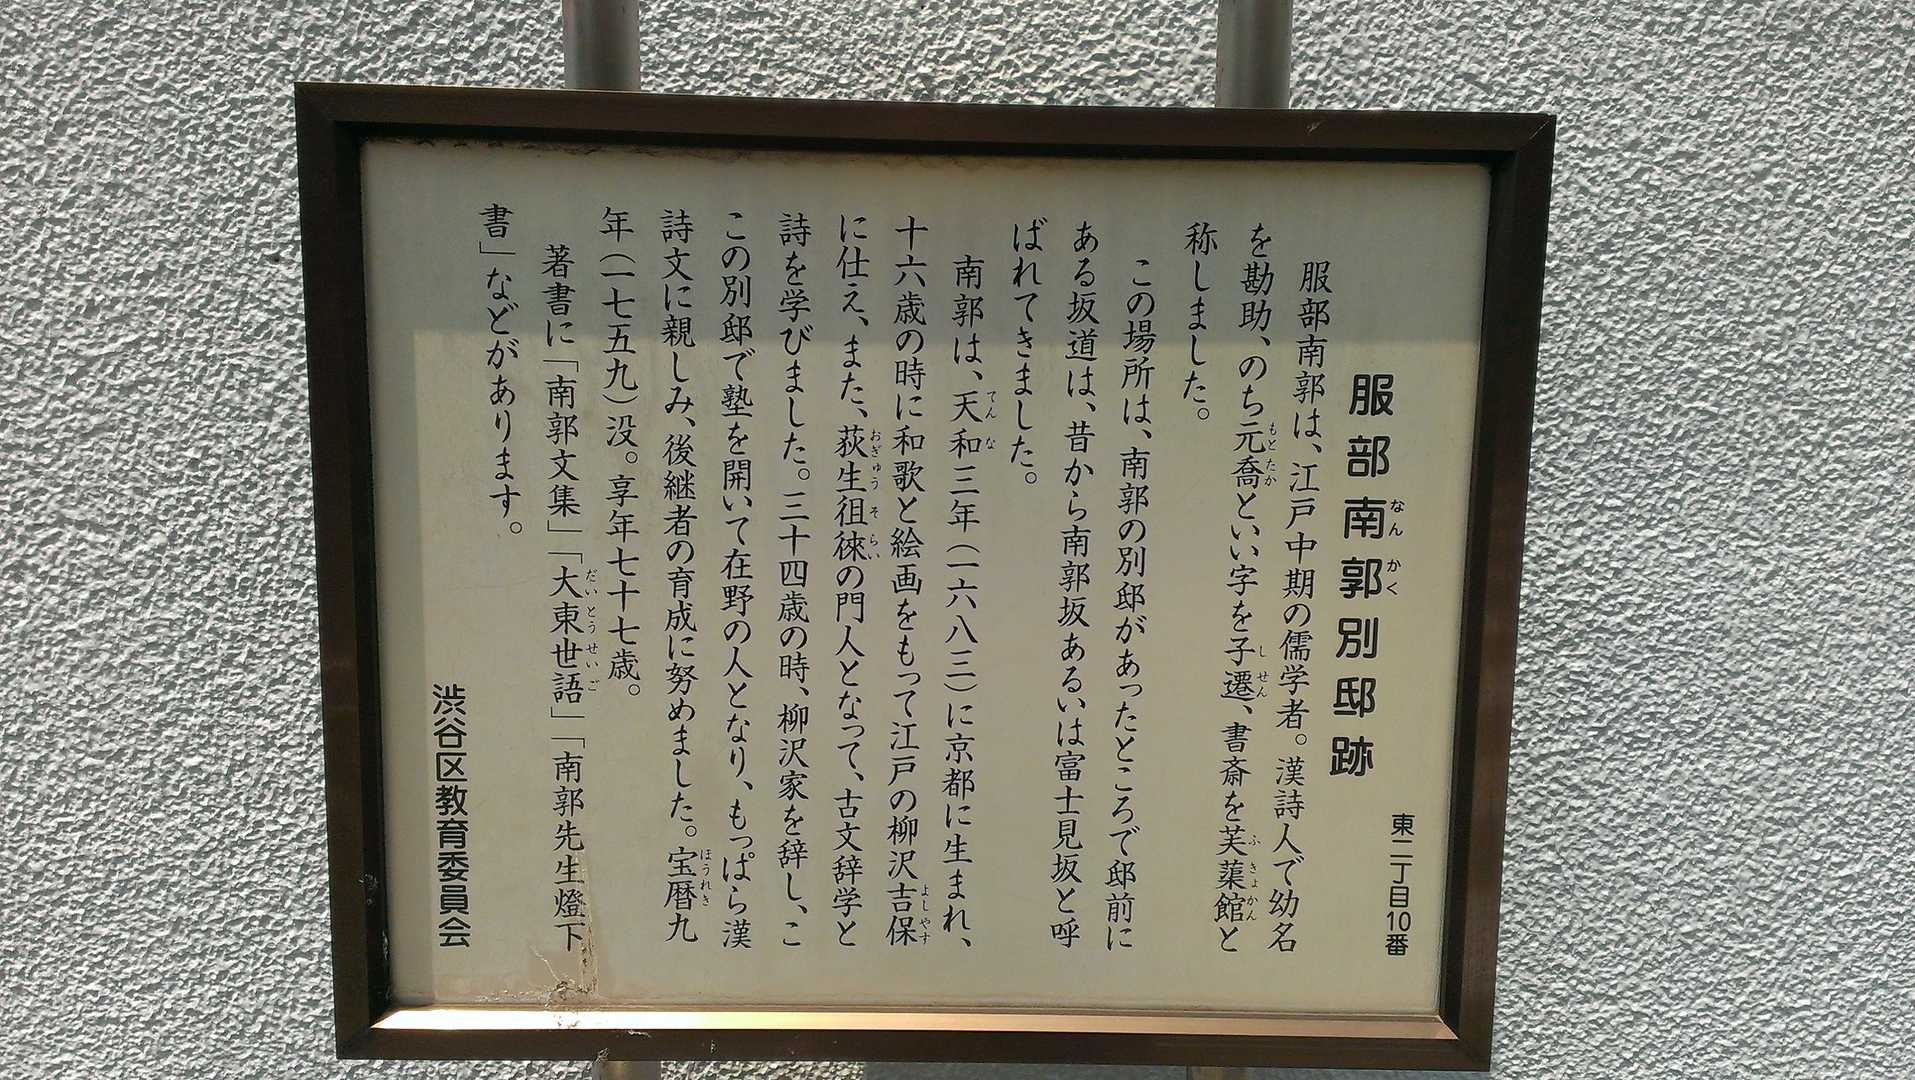 服部南郭別邸跡
なんかく
東二丁目10番
服部南郭は、江戸中期の儒学者。漢詩人で幼名
を勘助、のち元喬といい字を子遷、書斎を芙蕖館と
もとたか
しせん
ふきょかん
称しました。
この場所は、南郭の別邸があったところで邸前に
ある坂道は、昔から南郭坂あるいは富士見坂と呼
ばれてきました。
南郭は、天和三年(一六八三)に京都に生まれ、
てんな
十六歳の時に和歌と絵画をもって江戸の柳沢吉保
よしやす
に仕え、また、荻生徂徠の門人となって、古文辞学と
おぎゅうそらい
詩を学びました。三十四歳の時、柳沢家を辞し、こ
この別邸で塾を開いて在野の人となり、もっぱら漢
詩文に親しみ、後継者の育成に努めました。宝暦九
ほうれき
年(一七五九)没。享年七十七歳。
著書に「南郭文集」「大東世語」「南郭先生燈下
だいとうせいご
書」などがあります。
渋谷区教育委員会